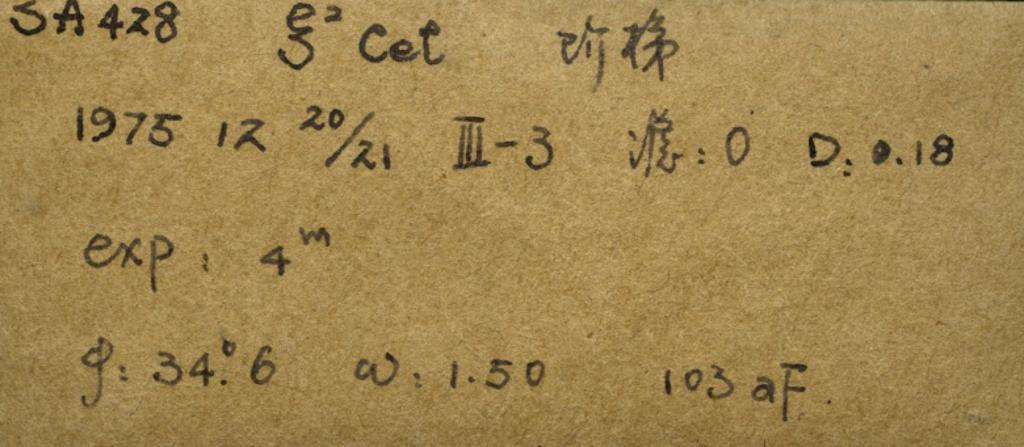 SA428 ξ² Cet 阶梯
1975 12 20/21 III-3 滤:0 D:0.18
exp: 4ᵐ
φ: 34°.6 ω: 1.50 103aF.